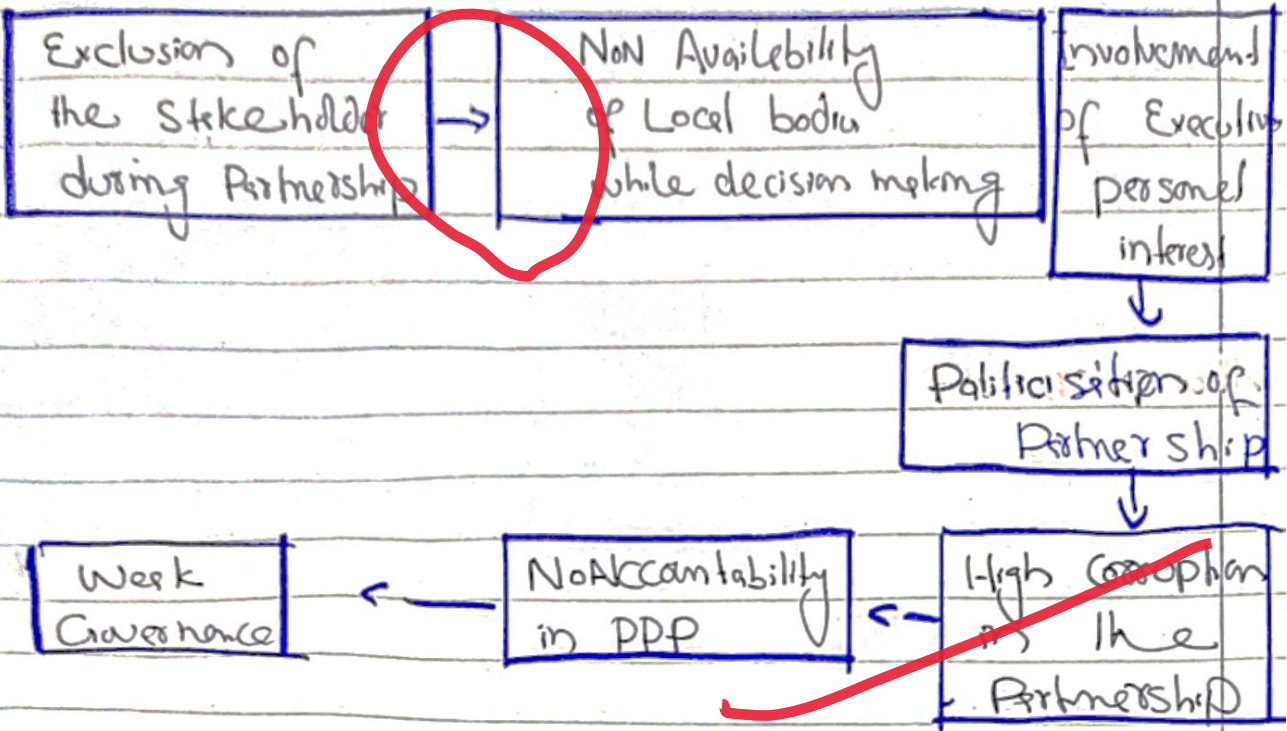 Exclusion of
the Stakeholder
during Partnership
→
NoN Availebility
of Local bodies
while decision making
Involvement
of Executive
personel
interest
↓
Politicisation of
Partnership
↓
High Corruption
in the
Partnership
←
No Accountability
in PPP
←
Weak
Governance